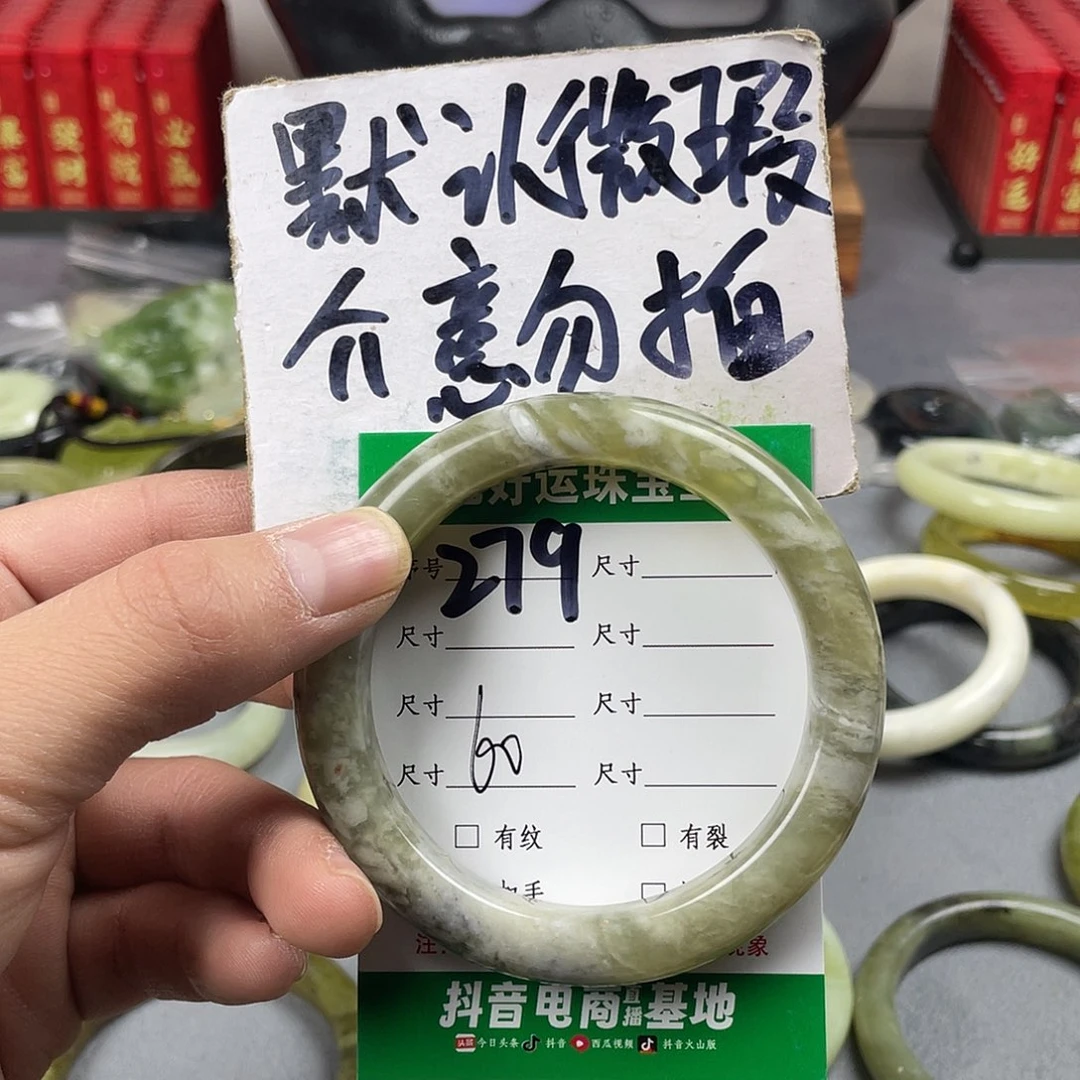 默认微瑕
介意勿拍
好运珠宝
序号 279 尺寸
尺寸 尺寸
尺寸 尺寸
尺寸 60 尺寸
□ 有纹 □ 有裂
抖音电商直播基地
头条 今日头条 抖音 西瓜视频 抖音火山版
发财
好运